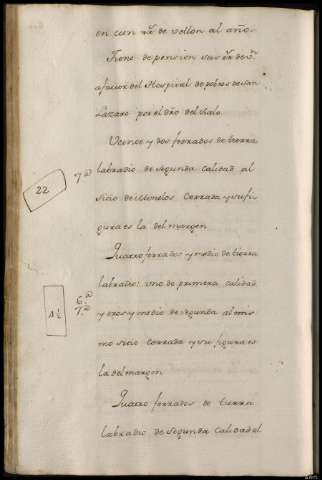 en cien rr.s de vellon al año.
Tiene de pension seis rr.s de v.n
afavor del Hospital de pobres de San
Lazaro por el dro del Suelo
Veinte y dos ferrados de tierra
labradio de segunda calidad al
sitio de Monelos Cerrada y su fi
gura es la del margen
Quatro ferrados y medio de tierra
labradio: uno de primera calidad
y tres y medio de segunda al mis
mo sitio cerrada y su figura es
la del margen
Quatro ferrados de tierra
labradio de segunda calidad al
22
7.a
4½
6.a
7.a